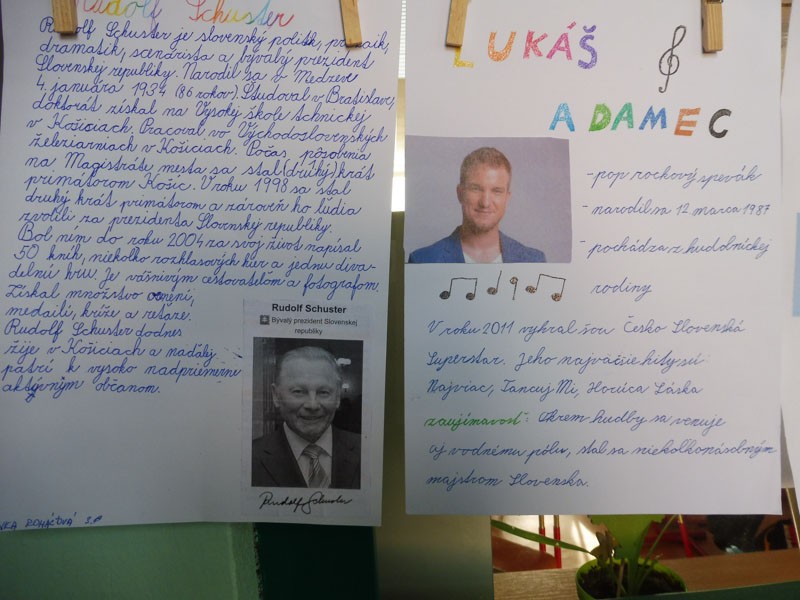 Rudolf Schuster
Rudolf Schuster je slovenský politik, prozaik,
dramatik, scenárista a bývalý prezident
Slovenskej republiky. Narodil sa v Medzeve
4. januára 1934 (86 rokov). Študoval v Bratislave,
doktorát získal na Vysokej škole technickej
v Košiciach. Pracoval vo Východoslovenských
železiarniach v Košiciach. Počas pôsobenia
na Magistráte mesta sa stal (druhý) krát
primátorom Košic. V roku 1998 sa stal
druhý krát primátorom a zároveň ho ľudia
zvolili za prezidenta Slovenskej republiky.
Bol ním do roku 2004 za svoj život napísal
50 kníh, niekoľko rozhlasových hier a jednu diva-
delnú hru. Je vášnivým cestovateľom a fotografom.
Získal množstvo ocnení,
medailí, kríže a reťaze.
Rudolf Schuster dodnes
žije v Košiciach a naďalej
patrí k vysoko nadpriemerne
aktývným občanom.
Rudolf Schuster
Bývalý prezident Slovenskej
republiky
Rudolf Schuster
LUKÁŠ
ADAMEC
- pop rockový spevák
- narodil sa 12 marca 1987
- pochádza z hudobníckej
rodiny
V roku 2011 vyhral šou Česko Slovenská
Superstar. Jeho najväčšie hity sú:
Najviac, Tancuj Mi, Horúca Láska
zaujímavosť: Okrem hudby sa venuje
aj vodnému pólu, stal sa niekoľkonásobným
majstrom Slovenska.